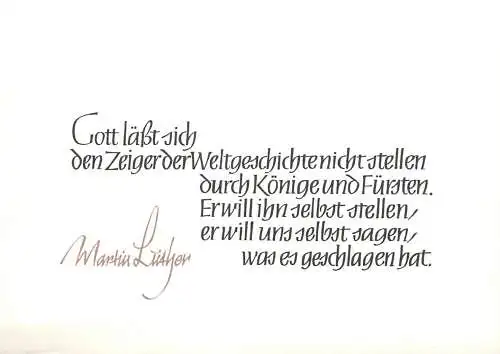 Gott läßt sich
den Zeiger der Weltgeschichte nicht stellen
durch Könige und Fürsten.
Er will ihn selbst stellen,
er will uns selbst sagen,
was es geschlagen hat.
Martin Luther